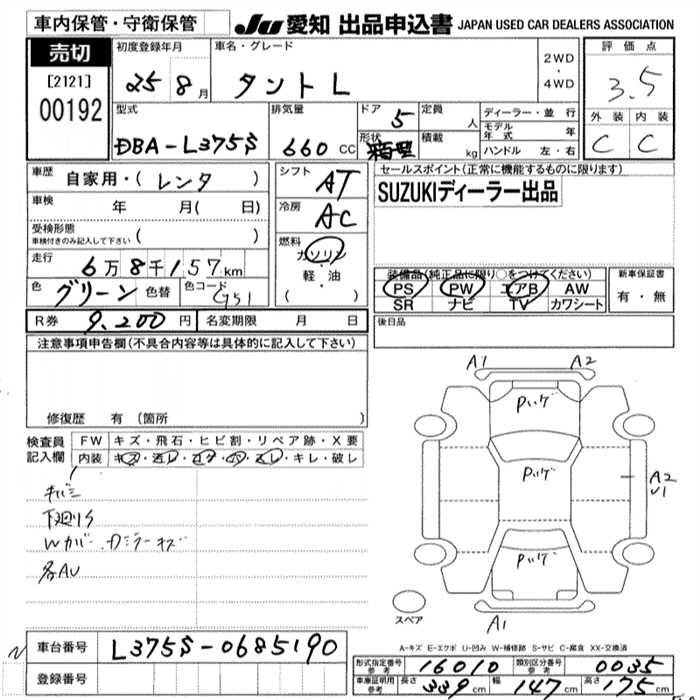 車内保管・守衛保管
JU 愛知 出品申込書 JAPAN USED CAR DEALERS ASSOCIATION
売切
[2121]
00192
初度登録年月
25 8月
車名・グレード
タント L
2WD
・
4WD
評価点
3.5
外装 内装
C C
型式
DBA-L375S
排気量
660 cc
ドア 5
形状 箱型
定員 人
積載 kg
ディーラー・並行
モデル年式 年
ハンドル 左・右
車歴 自家用・(レンタ)
車検 年 月(日)
受検形態
車検付きのみ記入して下さい ( )
走行 6万8千157km
色 グリーン 色替 色コード G51
シフト AT
冷房 AC
燃料
ガソリン
・
軽・油
( )
セールスポイント(正常に機能するものに限ります)
SUZUKIディーラー出品
装備品(純正品に限り○をつけてください)
PS PW エアB AW
SR ナビ TV カワシート
新車保証書
有・無
R券 9,200円 名変期限 月 日
後日品
注意事項申告欄(不具合内容等は具体的に記入して下さい)
修復歴 有 (箇所 )
検査員
記入欄
FW キズ・飛石・ヒビ割・リペア跡・X要
内装 キズ・汚レ・コゲ・穴・スレ・キレ・破レ
キバミ
下廻りサ
Wカバー・カラーキズ
各AU
A1 A2
Pハゲ
Pハゲ
A2
U1
Pハゲ
スペア
A1
A-キズ E-エクボ U-凹み W-補修跡 S-サビ C-腐食 XX-交換済
車台番号 L375S-0685190
登録番号
形式指定番号 参考 16010 類別区分番号 参考 0035
車庫証明用 参考 長さ 339cm 幅 147cm 高さ 175cm